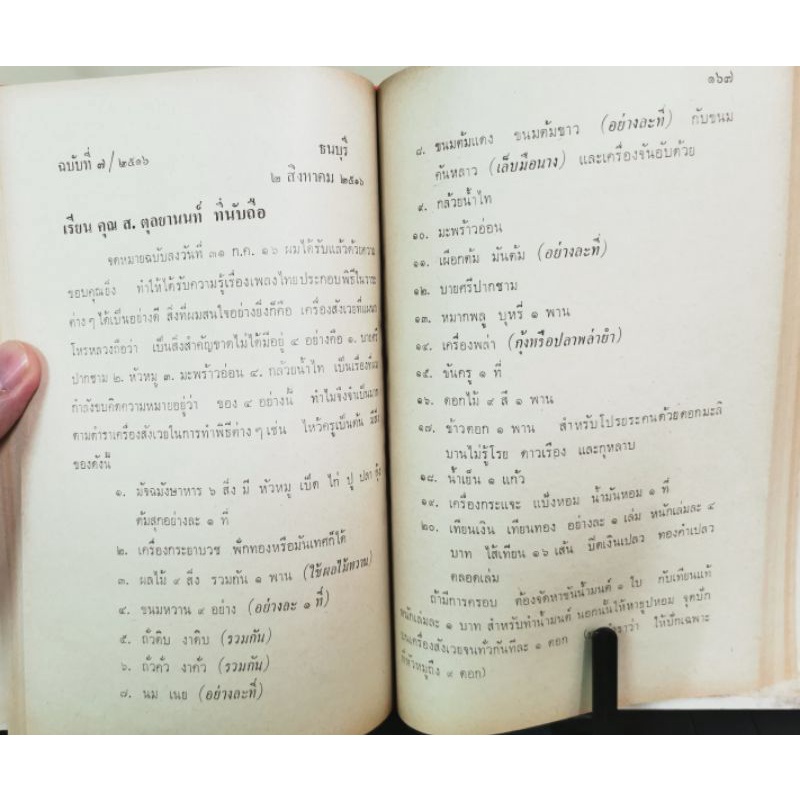 ฉบับที่ ๗/๒๕๑๖
ธนบุรี
๒ สิงหาคม ๒๕๑๖
เรียน คุณ ส. ตุลยานนท์ ที่นับถือ
จดหมายฉบับลงวันที่ ๓๑ ก.ค. ๑๖ ผมได้รับแล้วด้วยความ
ขอบคุณยิ่ง ทำให้ได้รับความรู้เรื่องเพลงไทยประกอบพิธีใน
ต่าง ๆ ได้เป็นอย่างดี สิ่งที่ผมสนใจอย่างยิ่งก็คือ เครื่องสังเวยที่
โหรหลวงถือว่า เป็นสิ่งสำคัญขาดไม่ได้มีอยู่ ๔ อย่างคือ ๑. บายศรี
ปากชาม ๒. หัวหมู ๓. มะพร้าวอ่อน ๔. กล้วยน้ำไท เป็นเรื่องที่
กำลังขบคิดความหมายอยู่ว่า ของ ๔ อย่างนี้ ทำไมจึงจำเป็น
ตามตำราเครื่องสังเวยในการทำพิธีต่าง ๆ เช่น ไหว้ครูเป็นต้น มี
ของดังนี้
๑. มัจฉมังษาหาร ๖ สิ่ง มี หัวหมู เป็ด ไก่ ปู ปลา กุ้ง
ต้มสุกอย่างละ ๑ ที่
๒. เครื่องกระยาบวช ฟักทองหรือมันเทศก็ได้
๓. ผลไม้ ๙ สิ่ง รวมกัน ๑ พาน (ใช้ผลไม้หวาน)
๔. ขนมหวาน ๙ อย่าง (อย่างละ ๑ ที่)
๕. ถั่วดิบ งาดิบ (รวมกัน)
๖. ถั่วคั่ว งาคั่ว (รวมกัน)
๗. นม เนย (อย่างละที่)
๑๖๗
๘. ขนมต้มแดง ขนมต้มขาว (อย่างละที่) กับขนม
คันหลาว (เล็บมือนาง) และเครื่องจันอับด้วย
๙. กล้วยน้ำไท
๑๐. มะพร้าวอ่อน
๑๑. เผือกต้ม มันต้ม (อย่างละที่)
๑๒. บายศรีปากชาม
๑๓. หมากพลู บุหรี่ ๑ พาน
๑๔. เครื่องพล่า (กุ้งหรือปลาพล่ายำ)
๑๕. ขันครู ๑ ที่
๑๖. ดอกไม้ ๙ สี ๑ พาน
๑๗. ข้าวตอก ๑ พาน สำหรับโปรยระคนด้วยดอกมะลิ
บานไม่รู้โรย ดาวเรือง และกุหลาบ
๑๘. น้ำเย็น ๑ แก้ว
๑๙. เครื่องกระแจะ แป้งหอม น้ำมันหอม ๑ ที่
๒๐. เทียนเงิน เทียนทอง อย่างละ ๑ เล่ม หนักเล่มละ ๔
บาท ไส้เทียน ๑๖ เส้น ปิดเงินเปลว ทองคำเปลว
ตลอดเล่ม
ถ้ามีการครอบ ต้องจัดหาขันน้ำมนต์ ๑ ใบ กับเทียนแท้
หนักเล่มละ ๑ บาท สำหรับทำน้ำมนต์ นอกนั้นให้หาธูปหอม จุดปัก
บนเครื่องสังเวยจนทั่วกันทีละ ๑ ดอก ให้ปักเฉพาะ
ที่หัวหมูถึง ๙ ดอก)